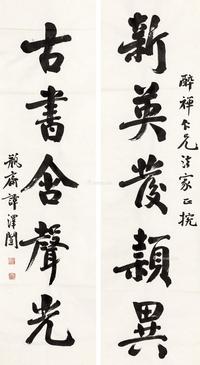 醉禪仁兄法家正捥
新英發穎異
古書含聲光
瓶齋譚澤闓